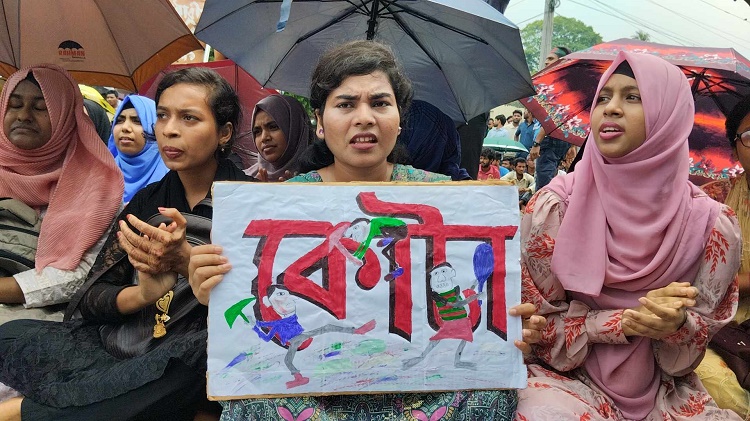 কোটা